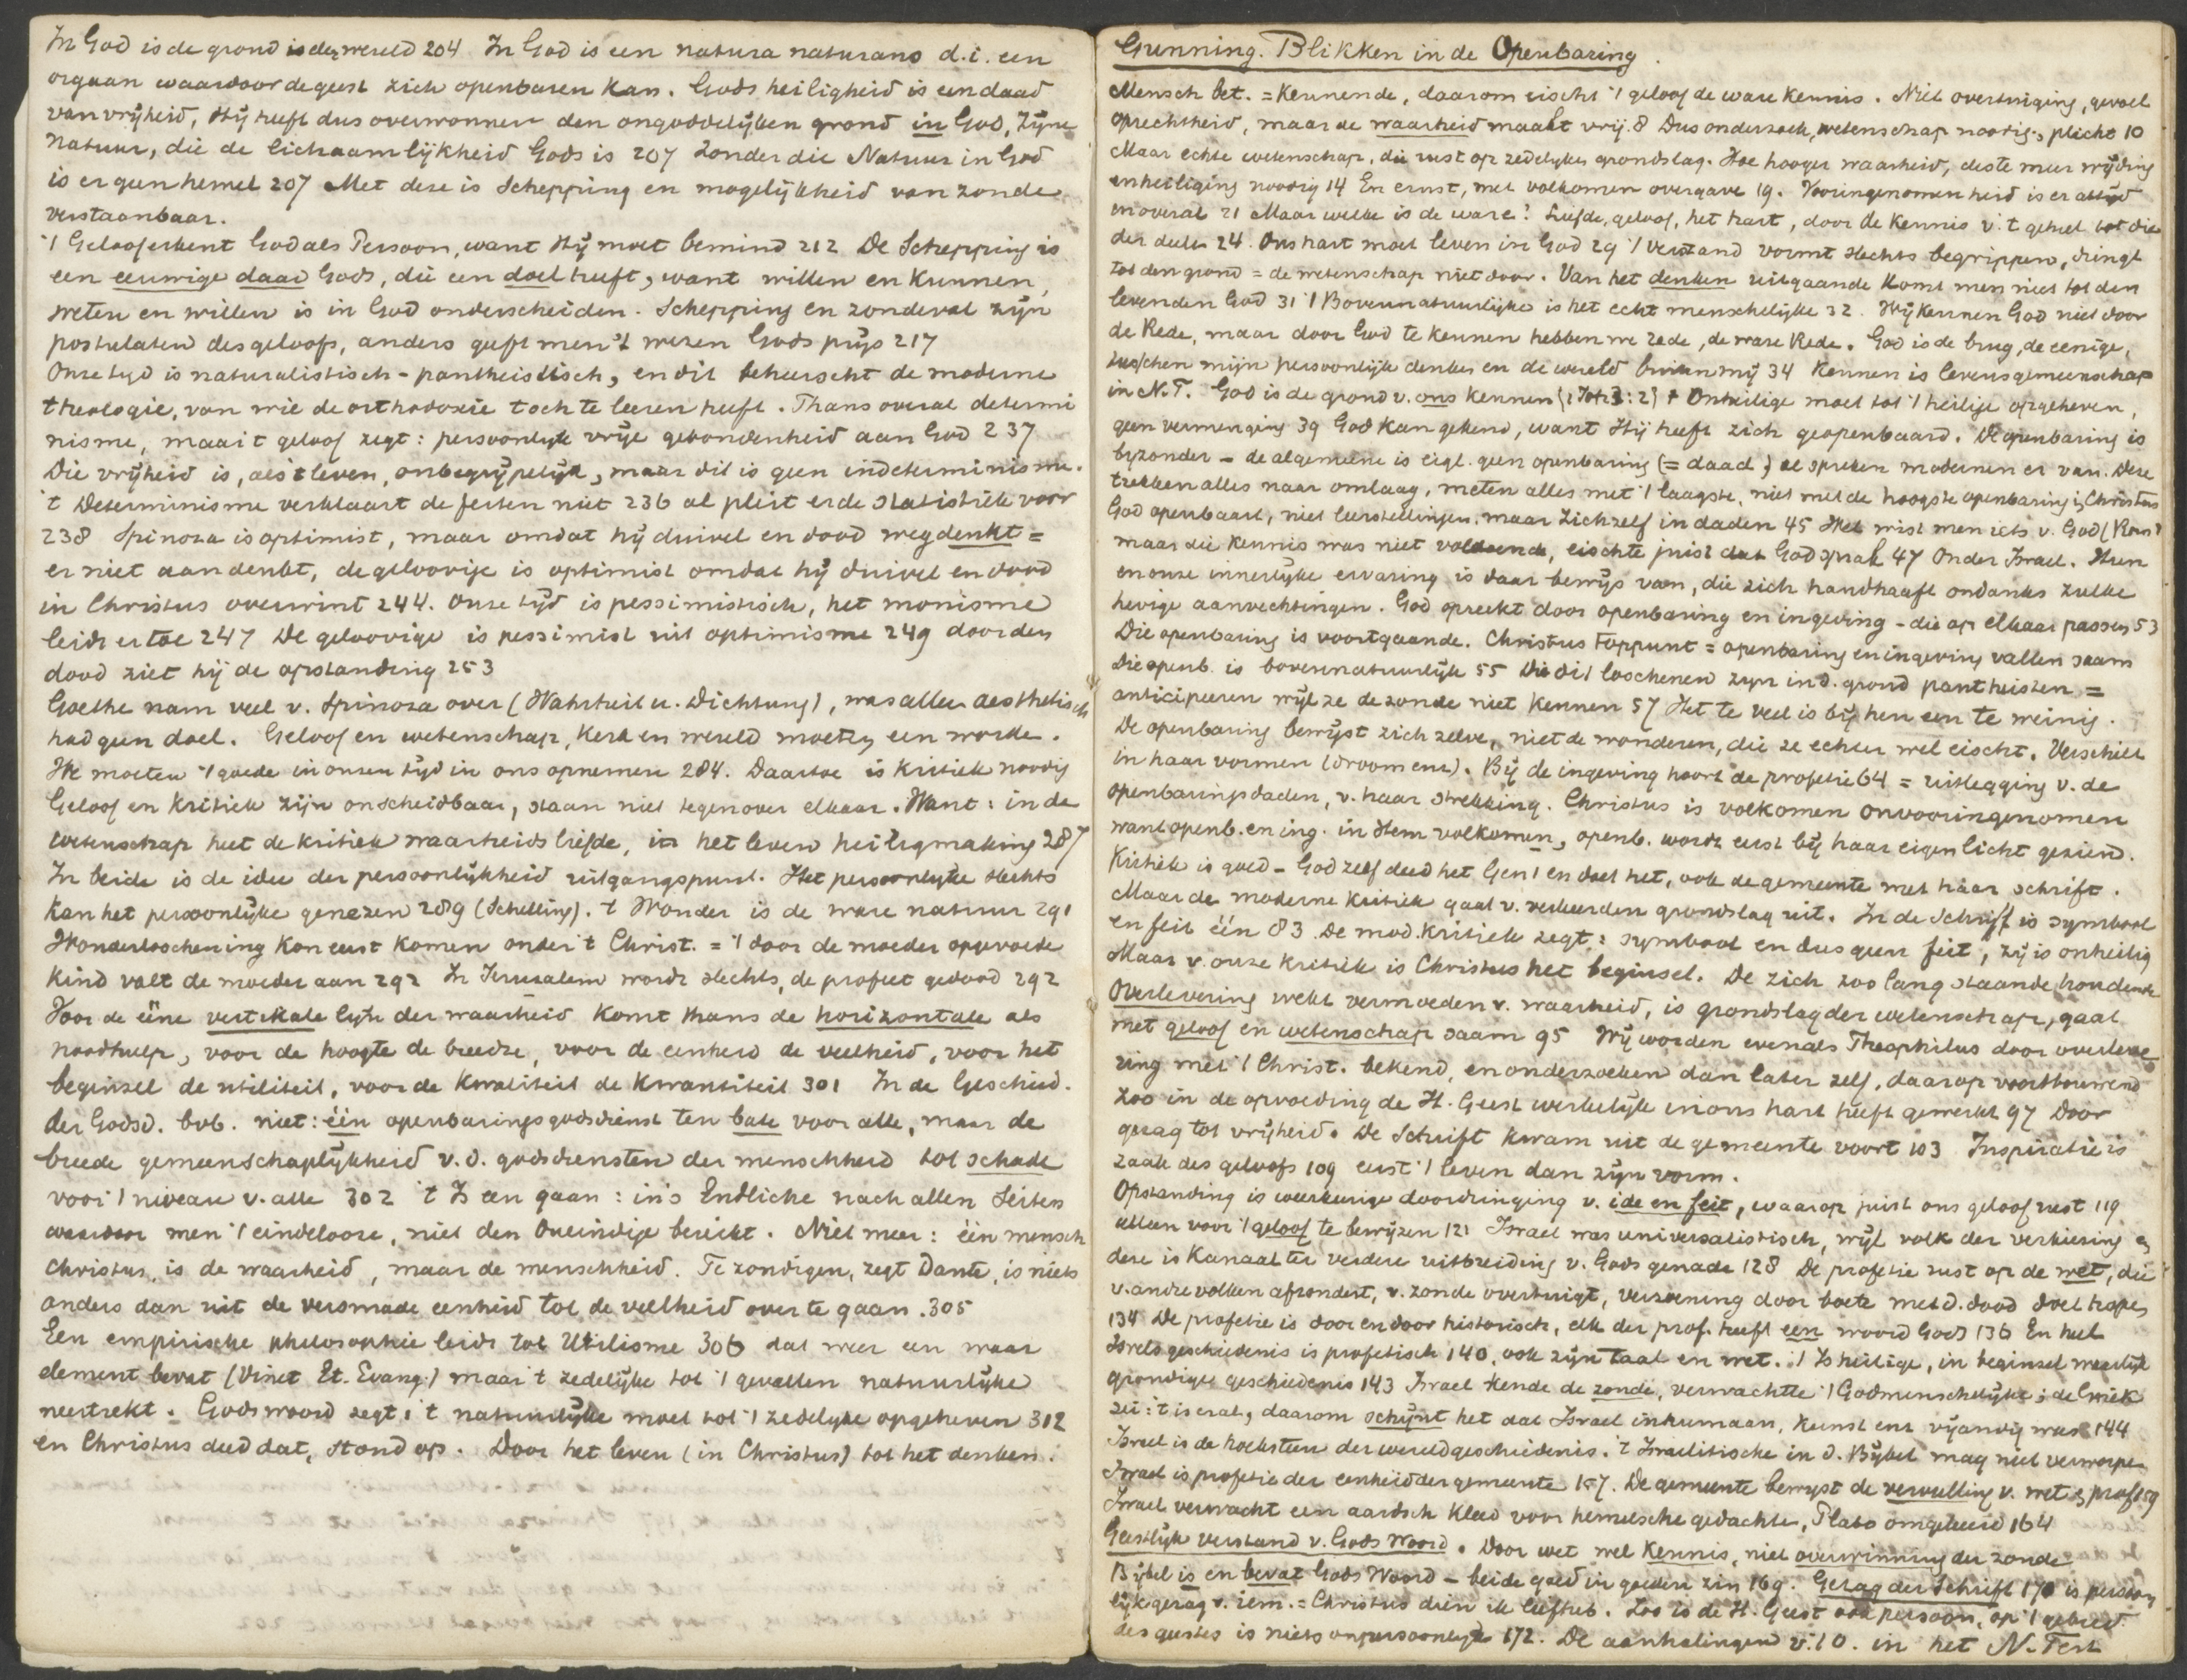 In God is de grond is der wereld 204 In God is een natura naturans d.i. een
orgaan waardoor de geest zich openbaren kan. Gods heiligheid is een daad
van vrijheid, Hij heeft dus overwonnen den ongoddelijken grond in God, Zijne
Natuur, die de lichaamlijkheid Gods is 207 Zonder die Natuur in God
is er geen hemel 207 Met deze is Schepping en mogelijkheid van zonde
verstaanbaar.
't Geloof erkent God als Persoon, want Hij moet bemind 212 De Schepping is
een eeuwige daad Gods, die een doel heeft, want willen en kunnen,
weten en willen is in God onderscheiden. Schepping en zondeval zijn
postulaten des geloofs, anders geeft men 't wezen Gods prijs 217
Onze tijd is naturalistisch - pantheistisch, en dit beheerscht de moderne
theologie, van wie de orthodoxie toch te leeren heeft. Thans overal determi
nisme, maar 't geloof zegt: persoonlijke vrije gebondenheid aan God 237
Die vrijheid is, als 't leven, onbegrijpelijk, maar dit is geen indeterminisme.
't Determinisme verklaart de feiten niet 236 al pleit er de statistiek voor
238 Spinoza is optimist, maar omdat hij duivel en dood wegdenkt =
er niet aan denkt, de geloovige is optimist omdat hij duivel en dood
in Christus overwint 244. Onze tijd is pessimistisch, het monisme
leidt er toe 247 De geloovige is pessimist uit optimisme 249 door den
dood ziet hij de opstanding 253
Goethe nam veel v. Spinoza over (Wahrheit u. Dichtung), was alleen aesthetisch
had geen doel. Geloof en wetenschap, Kerk en wereld moeten een worden.
We moeten 't goede in onzen tijd in ons opnemen 284. Daartoe is kritiek noodig
Geloof en Kritiek zijn onscheidbaar, staan niet tegenover elkaar. Want: in de
wetenschap heet de kritiek waarheidsliefde, in het leven heiligmaking 287
In beide is de idee der persoonlijkheid uitgangspunt. Het persoonlijke slechts
kan het persoonlijke genezen 289 (Schelling). 't Wonder is de ware natuur 291
Wonderloochening kon eerst komen onder 't Christ. = 't door de moeder opgevoede
kind valt de moeder aan 292 In Jeruzalem wordt slechts de profeet gedood 292
Voor de ééne vertikale lijn der waarheid komt thans de horizontale als
noodhulp, voor de hoogte de breedte, voor de eenheid de veelheid, voor het
beginsel de utiliteit, voor de kwaliteit de kwantiteit 301 In de Geschied.
der Godsd. bvb. niet: één openbaringsgodsdienst ten bate voor alle, maar de
breede gemeenschaplijkheid v.d. godsdiensten der menschheid tot schade
voor 't niveau v. alle 302 't Is een gaan: in's Endliche nach allen Seiten
waardoor men 't eindelooze, niet den Oneindige bereikt. Niet meer: één mensch
Christus, is de waarheid, maar de menschheid. Te zondigen, zegt Dante, is niets
anders dan uit de versmade eenheid tot de veelheid over te gaan. 305
Een empirische philosophie leidt tot Utilisme 306 dat weer een waar
element bevat (Vinet Et. Evang.) maar 't zedelijke tot 't gevallen natuurlijke
neertrekt. Gods woord zegt: 't natuurlijke moet tot 't zedelijke opgeheven 312
en Christus deed dat, stond op. Door het leven (in Christus) tot het denken.
Gunning. Blikken in de Openbaring.
Mensch bet. = Kennende, daarom eischt 't geloof de ware kennis. Niet overtuiging, gevoel
oprechtheid, maar de waarheid maakt vrij. 8 Dus onderzoek, wetenschap noodig, plicht 10
Maar echte wetenschap, die rust op zedelijken grondslag. Hoe hooger waarheid, deste meer wijding
en heiliging noodig 14 En ernst, met volkomen overgave 19. Vooringenomenheid is er altijd
en overal 21 Maar welke is de ware? Liefde, geloof, het hart, door de kennis v. 't geheel tot die
der deelen 24. Ons hart moet leven in God 29 't Verstand vormt slechts begrippen, dringt
tot den grond = de wetenschap niet door. Van het denken uitgaande komt men niet tot den
levenden God 31 't Bovennatuurlijke is het echt menschelijke 32. Wij kennen God niet door
de Rede, maar door God te kennen hebben we rede, de ware Rede. God is de brug, de eenige,
tusschen mijn persoonlijk denken en de wereld buiten mij 34 Kennen is levensgemeenschap
in N.T. God is de grond v. ons kennen (1 Joh 3:2) 't Onheilige moet tot 't heilige opgeheven,
geen vermenging 39 God kan gekend, want Hij heeft zich geopenbaard. De openbaring is
bijzonder - de algemeene is eigl. geen openbaring (= daad) al spreken modernen er van. Deze
trekken alles naar omlaag, meten alles met 't laagste, niet met de hoogste openbaring in Christus
God openbaart, niet leerstellingen, maar Zichzelf in daden 45 Wel wist men iets v. God (Rom 1
maar die kennis was niet voldoende, eischte juist dat God sprak 47 Onder Israel. Hun
en onze innerlijke ervaring is daar bewijs van, die zich handhaaft ondanks zulke
hevige aanvechtingen. God spreekt door openbaring en ingeving - die op elkaar passen 53
Die openbaring is voortgaande. Christus Toppunt = openbaring en ingeving vallen saam
Die openb. is bovennatuurlijk 55 Die dit loochenen zijn in d. grond pantheisten =
anticipeeren wijl ze de zonde niet kennen 57 Het te veel is bij hen een te weinig.
De openbaring bewijst zich zelve, niet de wonderen, die ze echter wel eischt. Verschilt
in haar vormen (droom enz). Bij de ingeving hoort de profetie 64 = uitlegging v. de
openbaringsdaden, v. haar strekking. Christus is volkomen onvooringenomen
want openb. en ing. in Hem volkomen, openb. wordt eerst bij haar eigen licht gezien.
Kritiek is goed - God zelf deed het Gen 1 en doet het, ook de gemeente met haar schrift.
Maar de moderne Kritiek gaat v. verkeerden grondslag uit. In de Schrift is symbool
en feit één 83 De mod. Kritiek zegt: symbool en dus geen feit, zij is onheilig
Maar v. onze kritiek is Christus het beginsel. De zich zoo lang staande houdende
Overlevering wekt vermoeden v. waarheid, is grondslag der wetenschap, gaat
met geloof en wetenschap saam 95 Wij worden evenals Theophilus door overleve
ring met 't Christ. bekend, en onderzoeken dan later zelf, daarop voortbouwend
Zoo in de opvoeding de H. Geest werkelijk in ons hart heeft gewerkt 97 Door
gezag tot vrijheid. De Schrift kwam uit de gemeente voort 103 Inspiratie is
zaak des geloofs 109 eerst 't leven dan zijn vorm.
Opstanding is weerkeerige doordringing v. idee en feit, waarop juist ons geloof rust 119
alleen voor 't geloof te bewijzen 121 Israel was universalistisch, wijl volk der verkiezing en
deze is Kanaal ter verdere uitbreiding v. Gods genade 128 De profetie rust op de wet, die
v. andre volken afzondert, v. zonde overtuigt, verzoening door boete met d. dood doet hopen
134 De profetie is door en door historisch, elk der prof. heeft een woord Gods 136 En heel
Israels geschiedenis is profetisch 140, ook zijn Taal en wet. 't Is heilige, in beginsel
grondige geschiedenis 143 Israel kende de zonde, verwachtte 't Godmenschelijke; de Griek
zei: 't is er al, daarom schijnt het dat Israel inhumaan, kunst enz vijandig was 144
Israel is de hoeksteen der wereldgeschiedenis. 't Israelitische in d. Bijbel mag niet verworpen
Israel is profetie der eenheid der gemeente 157. De gemeente bewijst de vervulling v. wet en prof 159
Israel verwacht een aardsch kleed voor hemelsche gedachten, Plato omgekeerd 164
Geestlijk verstand v. Gods Woord. Door wet wel kennis, niet overwinning der zonde
Bijbel is en bevat Gods Woord - beide goed in goeden zin 169. Gezag der Schrift 170 is persoon
lijk gezag v. iem. = Christus dien ik liefheb. Zoo is de H. Geest ook persoon, op 't gebied
des geestes is niets onpersoonlijks 172. De aanhalingen v. 't O. in het N. Test